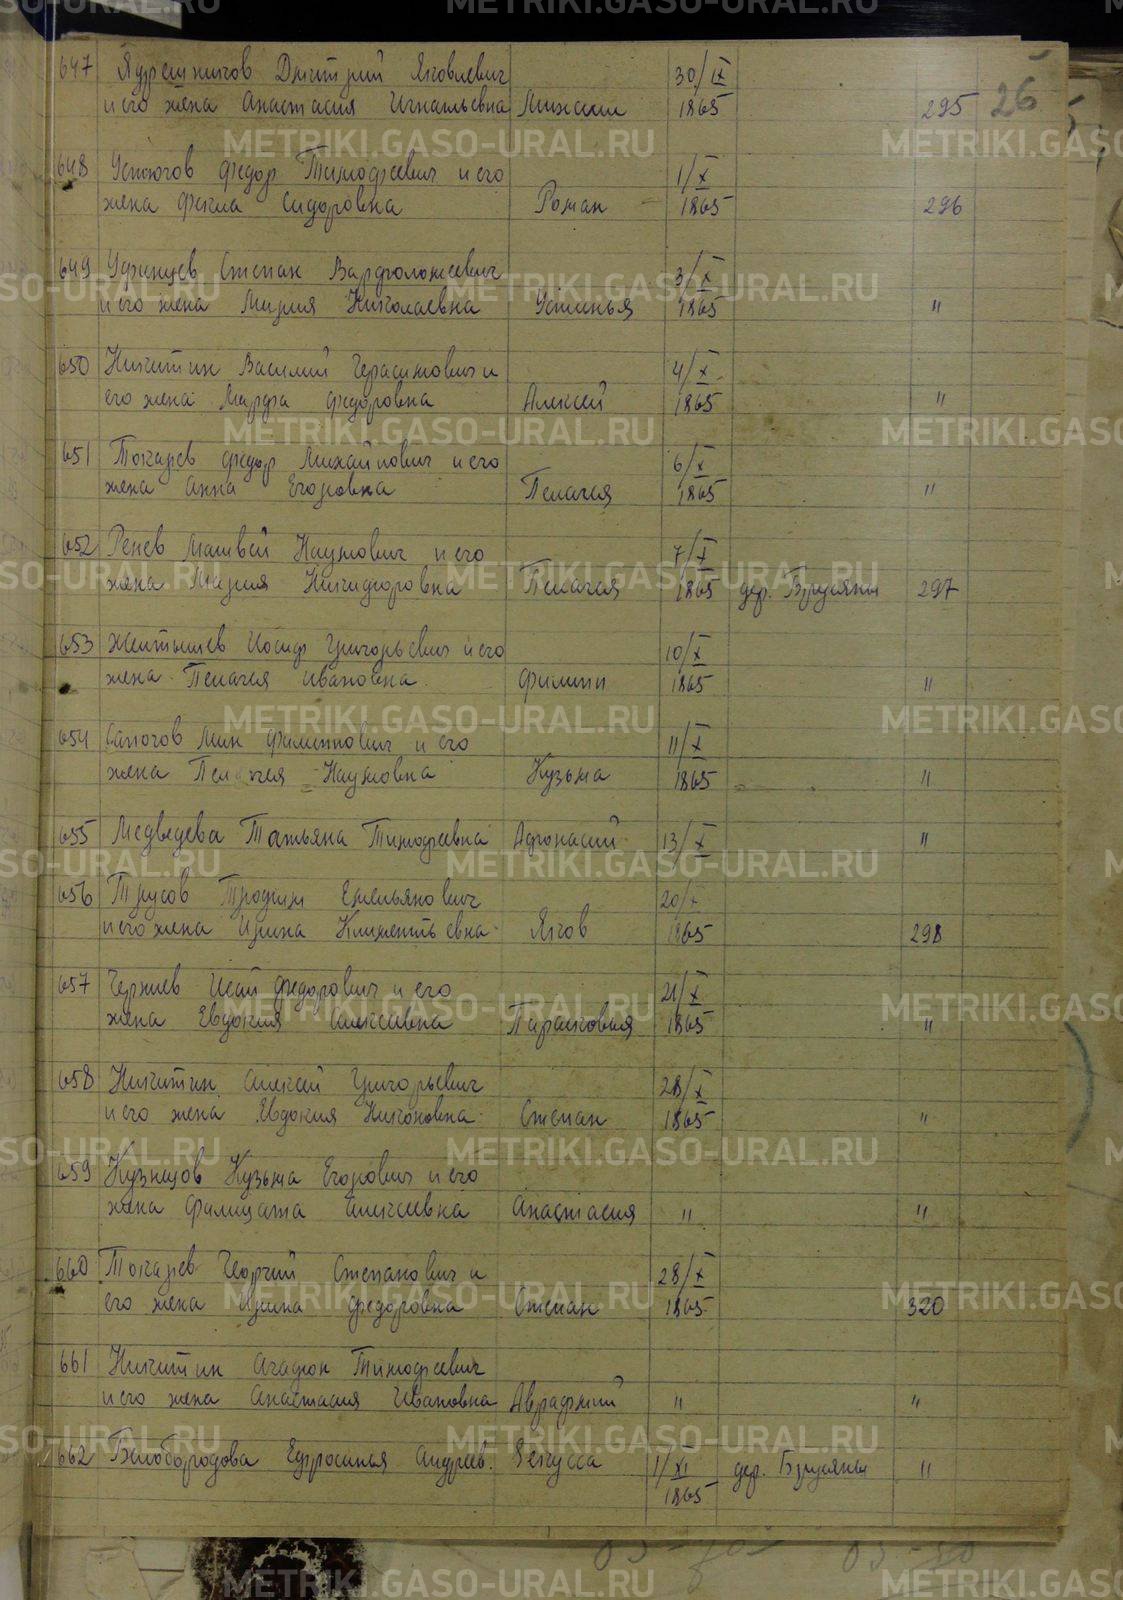 26
647 Ядрешников Дмитрий Яковлевич 30/IX
и его жена Анастасия Игнатьевна 1865 295
648 Устюгов Федор Тимофеевич и его 1/X
жена Фекла Сидоровна Роман 1865 296
649 Уфинцев Степан Варфоломеевич 3/X
и его жена Мария Николаевна Устинья 1865 "
650 Никитин Василий Герасимович и 4/X
его жена Марфа Федоровна Алексей 1865 "
651 Токарев Федор Михайлович и его 6/X
жена Анна Егоровна Пелагея 1865 "
652 Ренев Матвей Наумович и его 7/X
жена Мария Никифоровна Пелагея 1865 дер. Брусяны 297
653 Иосиф Григорьевич и его 10/X
жена Пелагея Ивановна Филипп 1865 "
654 Сапогов Филиппович и его 11/X
жена Пелагея Наумовна Кузьма 1865 "
655 Медведева Татьяна Тимофеевна Афонасий 13/X "
656 Трусов Трофим Емельянович 20/X
и его жена Ирина Климентьевна Яков 1865 298
657 Исай Федорович и его 21/X
жена Евдокия Алексеевна Парасковья 1865 "
658 Никитин Алексей Григорьевич 28/X
и его жена Евдокия Никоновна Степан 1865 "
659 Кузнецов Кузьма Егорович и его
жена Филицата Алексеевна Анастасия " "
660 Токарев Георгий Степанович и 28/X
его жена Ирина Федоровна Степан 1865 320
661 Никитин Агафон Тимофеевич
и его жена Анастасия Ивановна " "
662 Белобородова Ефросинья Андреев. 1/XI дер. Брусяны "
1865
METRIKI.GASO-URAL.RU